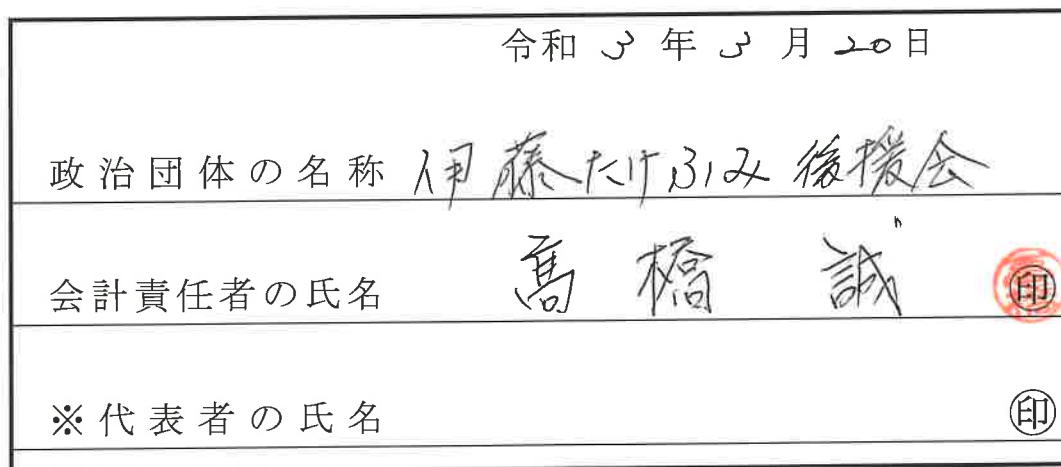 令和 3 年 3 月 20日
政治団体の名称 伊藤たけふみ後援会
会計責任者の氏名 髙橋 誠 印
※代表者の氏名 印